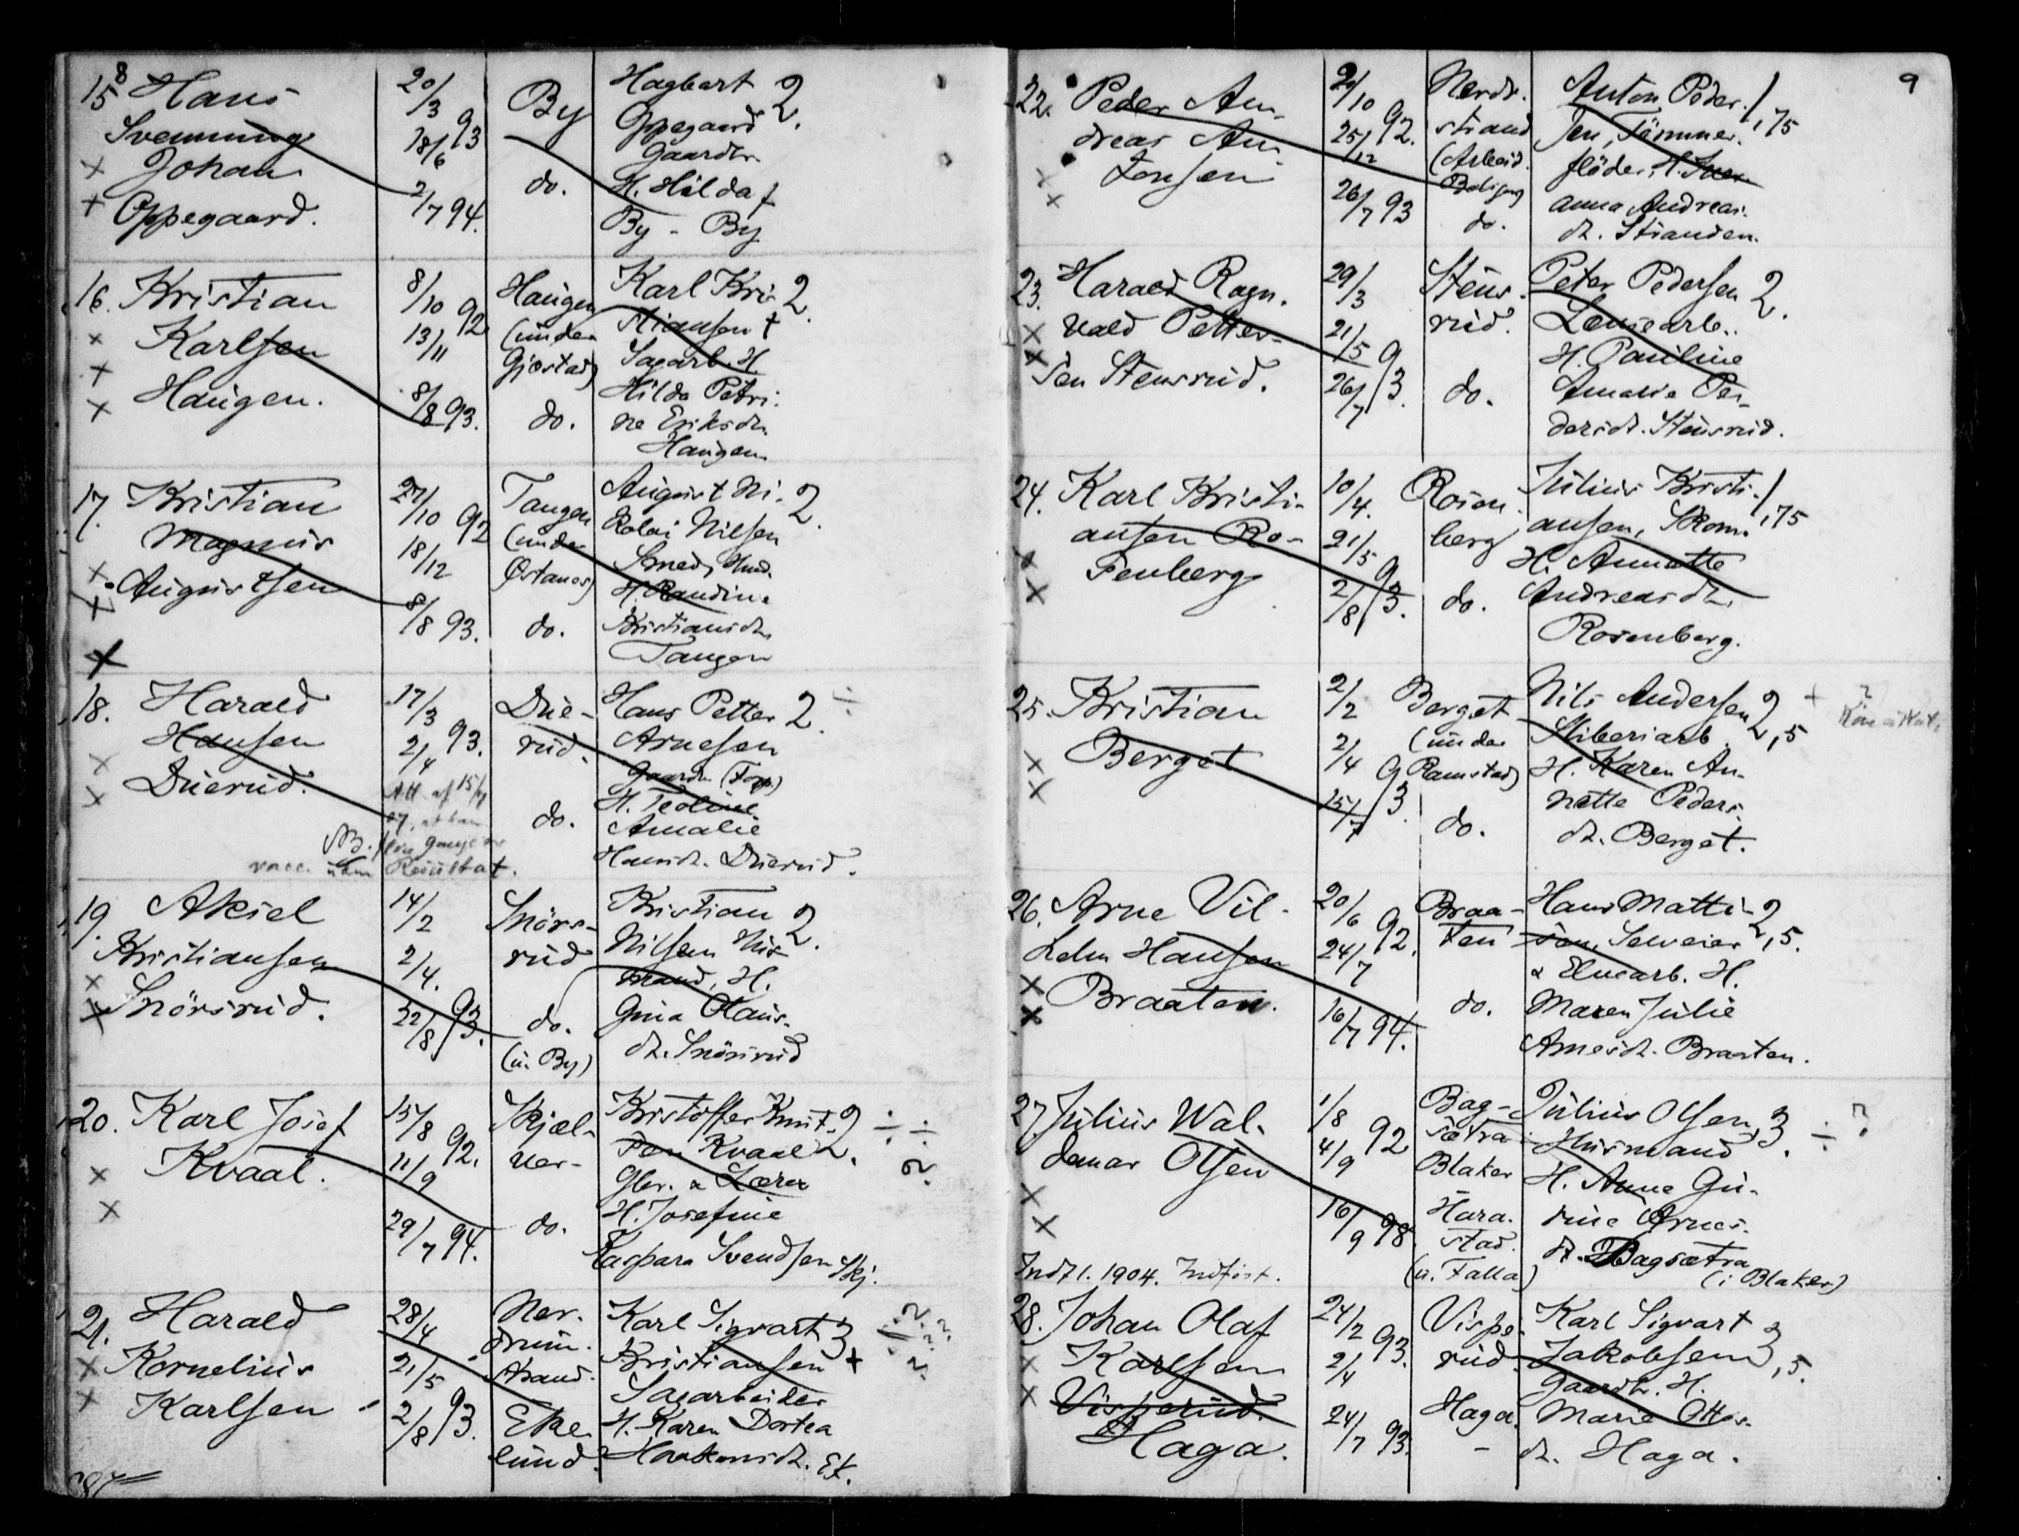 8
15 Hans
Svenning
Johan
Oppegaard.
20/3 93
18/6
2/7 94.
By
do.
Hagbart 2.
Oppegaard
Gaardbr.
H. Hilda f
By - By
16. Kristian
Karlsen
Haugen.
8/10 92
13/11
8/8 93.
Haugen
(under
Gjøstad)
do.
Karl Kris 2.
tiansen +
Sagarb. H
Hilda Petri.
ne Eriksdt.
Haugen
17. Kristian
Magnus
Augustsen
27/10 92
18/12
8/8 93.
Tangen
(under
Østanes)
do.
August Ni- 2.
kolai Nilsen
Smed, Hmd.
H. Randine
Kristiansdt.
Tangen
18. Harald
Hansen
Duerud.
17/3 93.
2/4
Att. af 15/7
NB.
vacc. uden Resultat.
Due-
rud.
do.
Hans Petter 2. ÷
Arnesen
Gaardbr. (Forp.)
H. Teoline
Amalie
Hansdt. Duerud.
19. Aksel
Kristiansen
Snörsrud.
14/2
2/4.
22/8 93.
Snörs-
rud
do.
(u. By)
Kristian 2.
Nilsen Hus
mand, H.
Gina Olaus-
dt. Snörsrud
20. Karl Josef
Kvaal.
15/8 92.
11/9
29/7 94.
Skjæl-
ver-
do.
Kristoffer Knut- 2. ÷ ÷ ?
sen Kvaal
Gbr. & Lærer
H. Josefine
Kaspara Svendsen Skj.
21. Harald
Kornelius
Karlsen
28/4
21/5
2/8 93.
Ner.
drum.
strand.
Eke
lund.
Karl Sigvart 3 ÷ ? ? ?
Kristiansen +
Sagarbeider
H. Karen Dortea
Haakonsdt. Ek.
9
22. Peder An-
dreas An-
tonsen
21/10 92.
25/12
26/7 93
Nerdr.
strand
(Arbeid.
Bolig)
do.
Anton Peder- 1,75
sen, Tømmer-
fløder. H.
Anna Andreas.
dt. Stranden.
23. Harald Ragn.
vald Petter-
sen Stensrud.
29/3
21/5 93.
26/7
Stens-
rud.
do.
Peter Pedersen 2.
Lensearb.
H. Pauline
Amalie Pe-
dersdt. Stensrud.
24. Karl Kristi-
ansen Ro-
senberg
10/4.
21/5 93.
2/8
Rosen-
berg
do.
Julius Kristi- 1,75
ansen, Skom.
H. Annette
Andreasdt.
Rosenberg.
25. Kristian
Berget
2/2
2/4 93.
15/7
Berget
(under
Ramstad)
do.
Nils Andersen 2,5 + ?
Sliberiarb.
H. Karen An-
nette Peders-
dt. Berget.
26. Arne Vil-
helm Hansen
Braaten.
20/6 92.
24/7
16/7 94.
Braa-
ten
do.
Hans Matti- 2,5.
sen, Selveier
& Elvearb. H.
Maren Julie
Arnesdt. Braaten.
27. Julius Wal-
demar Olsen
Indfl. 1904. Indført.
1/8 92
4/9
16/9 98
Bag-
sætra
Blaker
Hara-
stad.
(u. Falla)
Julius Olsen, 3. ÷ ?
Husmand
H. Anne Gu-
rine Arnes-
dt. Bagsætra
(i Blaker)
28. Johan Olaf
Karlsen
Visperud.
Haga.
24/2 93.
2/4
24/7 93.
Vispe-
rud.
Haga.
-
Karl Sigvart
Jakobsen 3,5.
Gaardbr. H.
Marie Ottos-
dt. Haga.